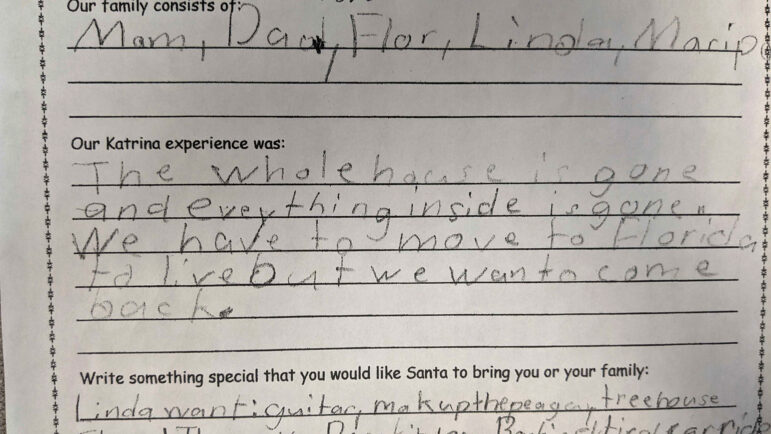 Our family consists of:
Mom, Dad, Flor, Linda,
Our Katrina experience was:
The whole house is gone
and everything inside is gone.
We have to move to Florida
to live but we wan to come
back.
Write something special that you would like Santa to bring you or your family:
Linda want: guitar, treehouse